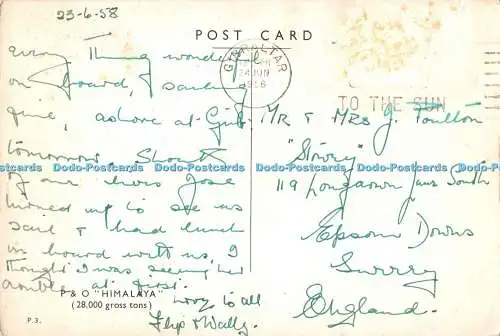 23-6-58
POST CARD
Every thing wonderful
on board, & sailing
fine, ashore at Gib
tomorrow.
of our
turned up to see us
sail & had lunch
on board with us, I
thought I was seeing her
double at first.
love to all
Flip & Wally.
P & O "HIMALAYA"
(28,000 gross tons)
P.3.
GIBRALTAR
24 JUN
TO THE SUN
Mr & Mrs J. Foulton
119 Longdown Lane South
Epsom Downs
Surrey
England.
Dodo-Postcards Dodo-Postcards Dodo-Postcards Dodo-Postcards Dodo-Postcards Dodo-Postcards